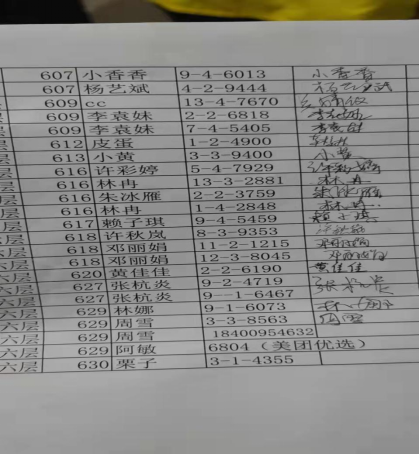 607 小香香 9-4-6013 小香香
607 杨艺斌 4-2-9444
609 cc 13-4-7670
609 李袁妹 2-2-6818
609 李袁妹 7-4-5405
612 皮蛋 1-2-4900
613 小黄 3-3-9400
616 许彩婷 5-4-7929
616 林冉 13-3-2881 林冉
616 朱冰雁 2-2-3759
616 林冉 1-4-2848
617 赖子琪 9-4-5459
618 许秋岚 8-3-9353
618 邓丽娟 11-2-1215
618 邓丽娟 12-3-8045
620 黄佳佳 2-2-6190 黄佳佳
627 张杭炎 9-2-4719
627 张杭炎 9--1-6467
六层 629 林娜 9-1-6073
六层 629 周雪 3-3-8563 周雪
六层 629 周雪 18400954632
六层 629 阿敏 6804（美团优选）
六层 630 栗子 3-1-4355